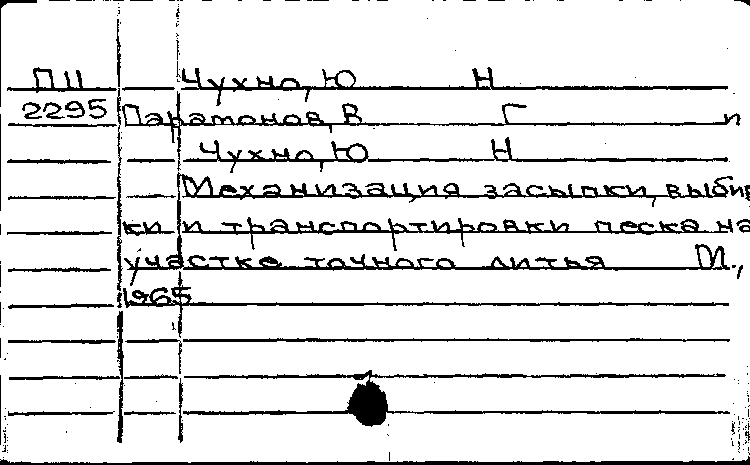 ПII Чухно, Ю Н
2295 Парамонов, В Г и
Чухно, Ю Н
Механизация засыпки, выбив
ки и транспортировки песка на
участке точного литья М.,
1965